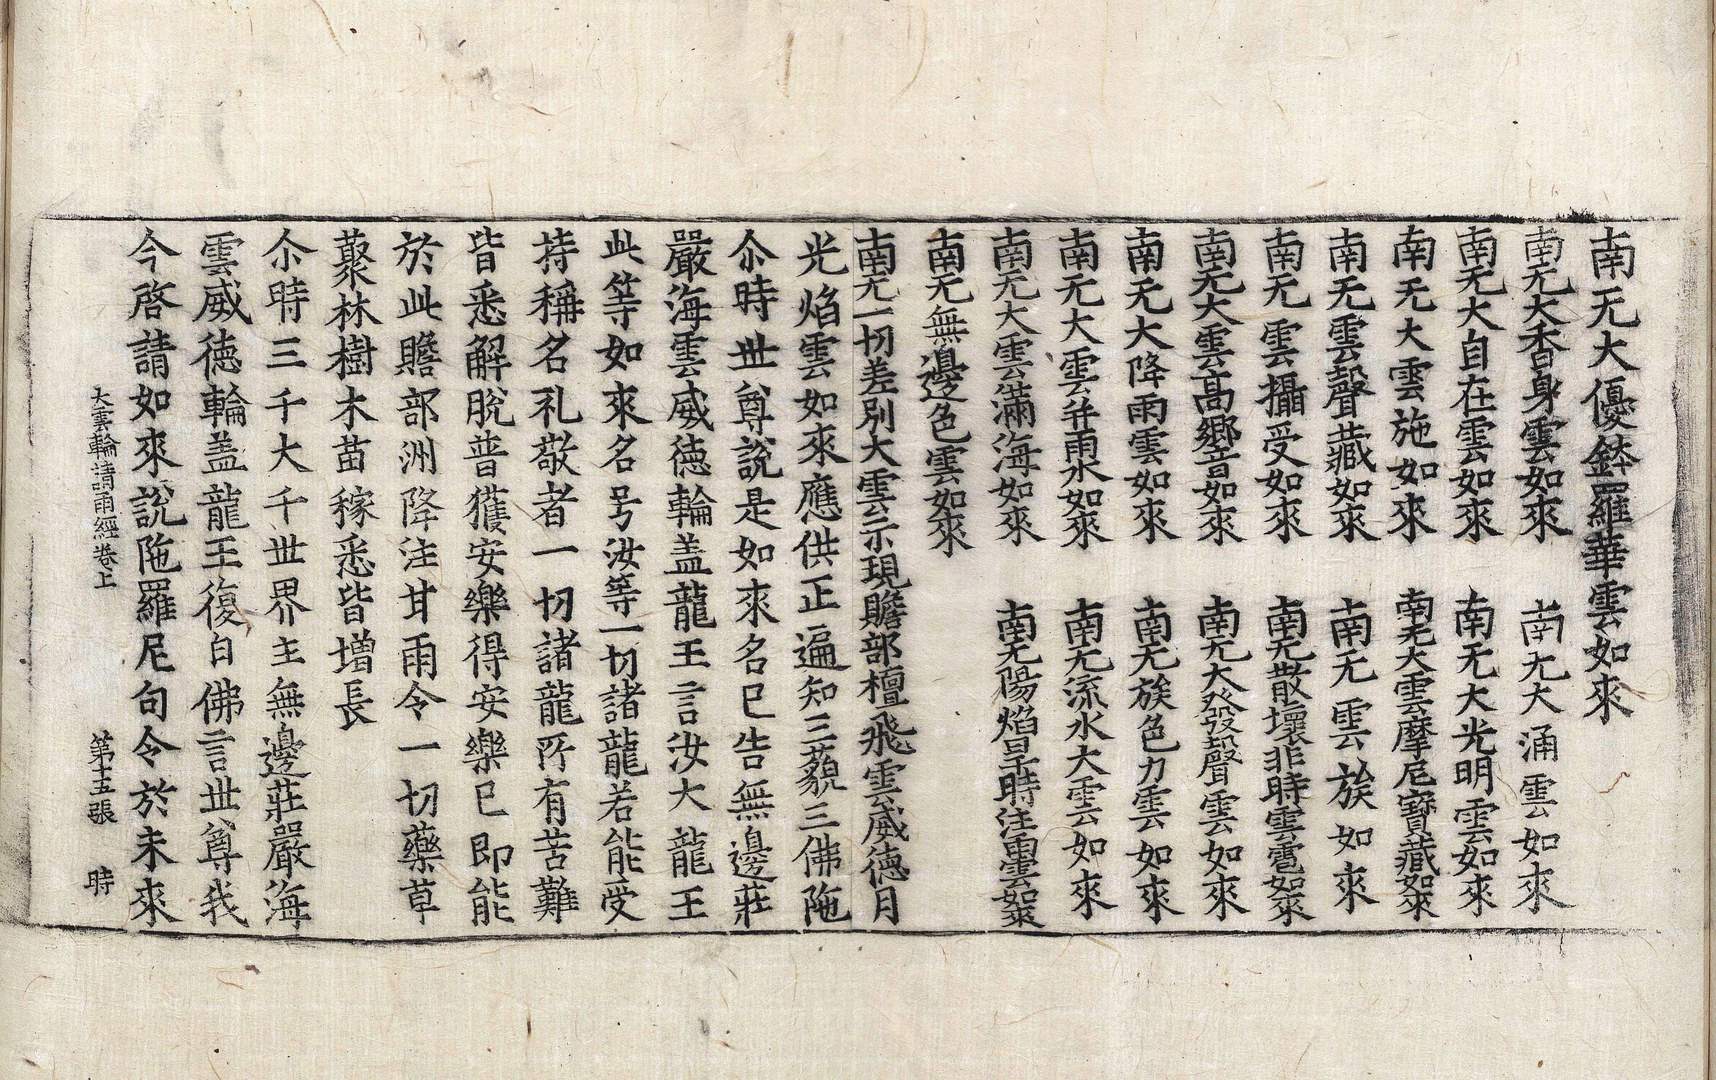 南无大優鉢羅華雲如來
南无大香身雲如來　南无大涌雲如來
南无大自在雲如來　南无大光明雲如來
南无大雲施如來　南无大雲摩尼寶藏如來
南无雲聲藏如來　南无雲族如來
南无雲攝受如來　南无散壞非時雲雹如來
南无大雲高響音如來　南无大發聲雲如來
南无大降雨雲如來　南无族色力雲如來
南无大雲并雨水如來　南无流水大雲如來
南无大雲滿海如來　南无陽焰旱時注雨雲如來
南无無邊色雲如來
南无一切差別大雲示現贍部檀飛雲威德月
光焰雲如來應供正遍知三藐三佛陁
尒時世尊說是如來名已告無邊莊
嚴海雲威德輪盖龍王言汝大龍王
此等如來名号汝等一切諸龍若能受
持稱名礼敬者一切諸龍所有苦難
皆悉解脫普獲安樂得安樂已即能
於此贍部洲降注甘雨令一切藥草
藂林樹木苗稼悉皆增長
尒時三千大千世界主無邊莊嚴海
雲威德輪盖龍王復白佛言世尊我
今啓請如來說陁羅尼句令於未來
大雲輪請雨經卷上　第十五張　時